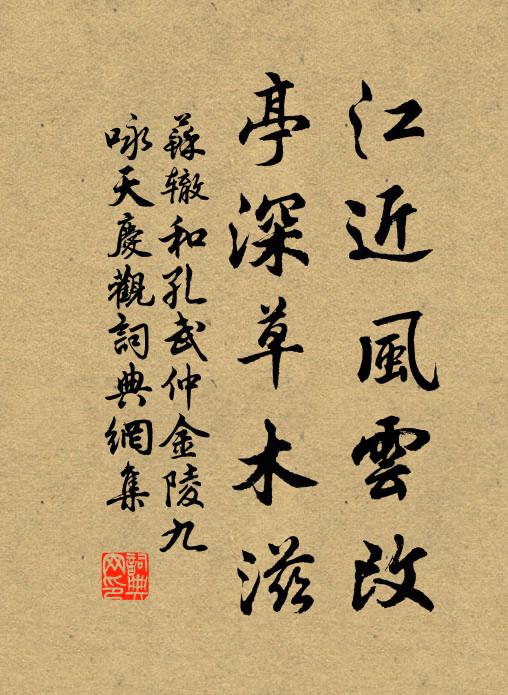 江近風雲改
亭深草木滋
蘇辙和孔武仲金陵九
咏天慶觀詞典網集
詞典
网印